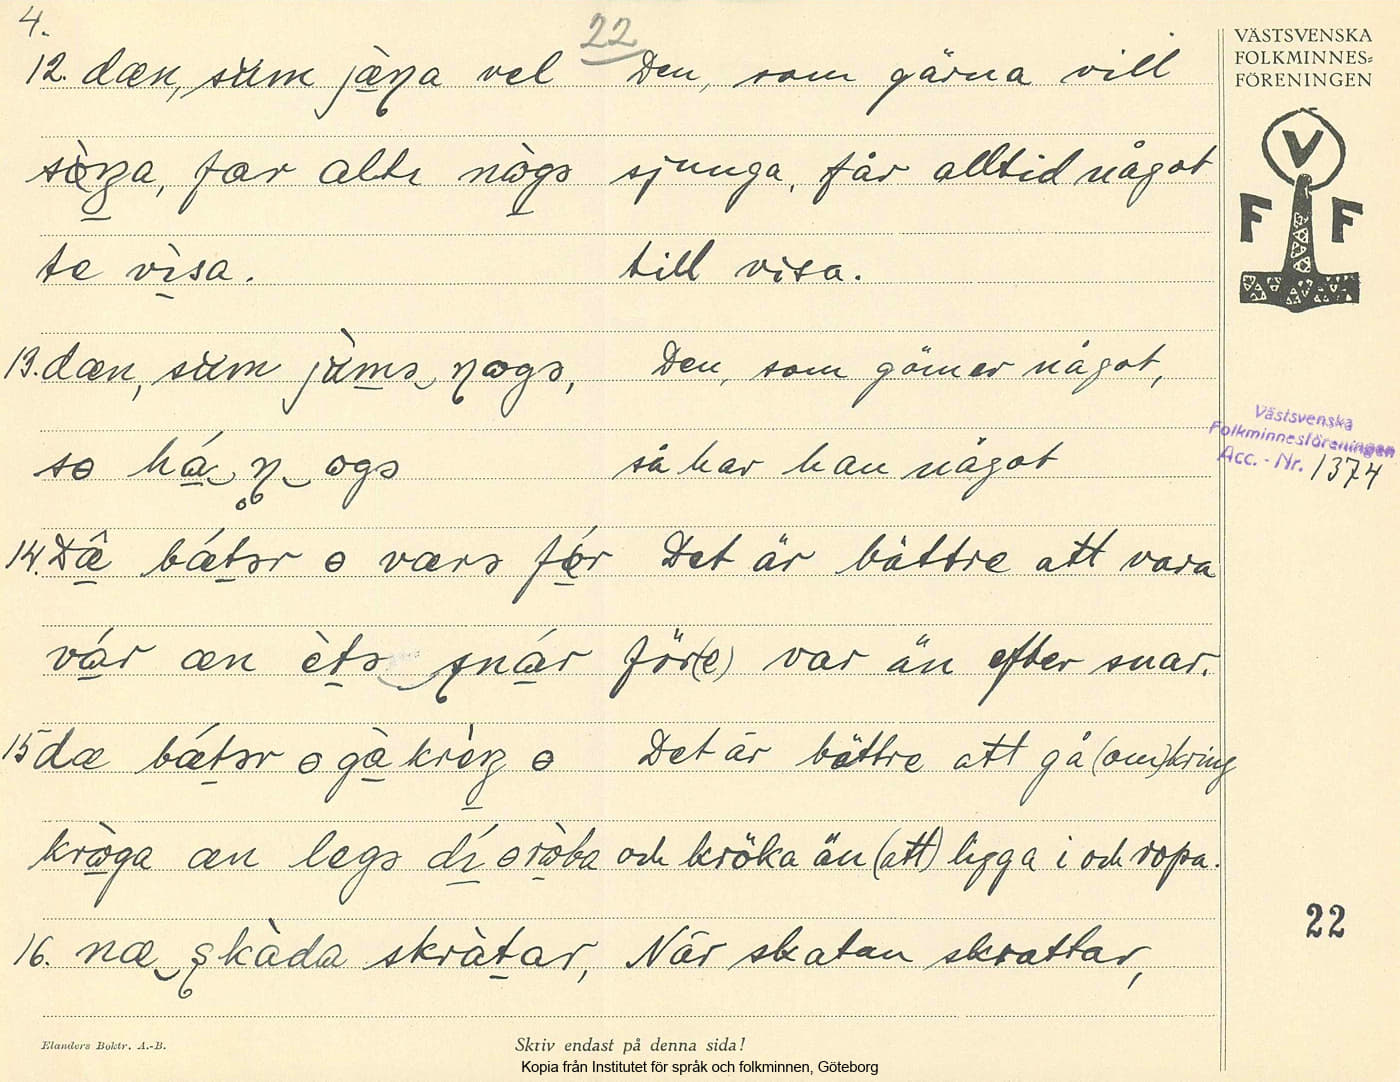 4.
22
VÄSTSVENSKA
FOLKMINNES=
FÖRENINGEN
V
F F
12. dæn, sưm jæ̀ŋa vel Den, som gärna vill
sòŋa, fær alti nògə sjunga, får alltid något
te vìsa. till visa.
13. dæn, sưm jæ̀mə ŋogə, Den, som gömer något,
sɵ há ŋ ogə så har han något
14. Dæ̂ bǽtər ɵ værə fǿr Det är bättre att vara
vár æn ètə snár för(e) var än efter snar.
15 dæ bǽtər ɵ gà krèŋ ɵ Det är bättre att gå (om)kring
kròga æn legə dí ɵ ròba och kröka än (att) ligga i och ropa.
16. næ skàda skràtar, När skatan skrattar,
Västsvenska
Folkminnesföreningen
Acc. - Nr. 1374
22
Elanders Boktr. A.-B.
Skriv endast på denna sida!
Kopia från Institutet för språk och folkminnen, Göteborg